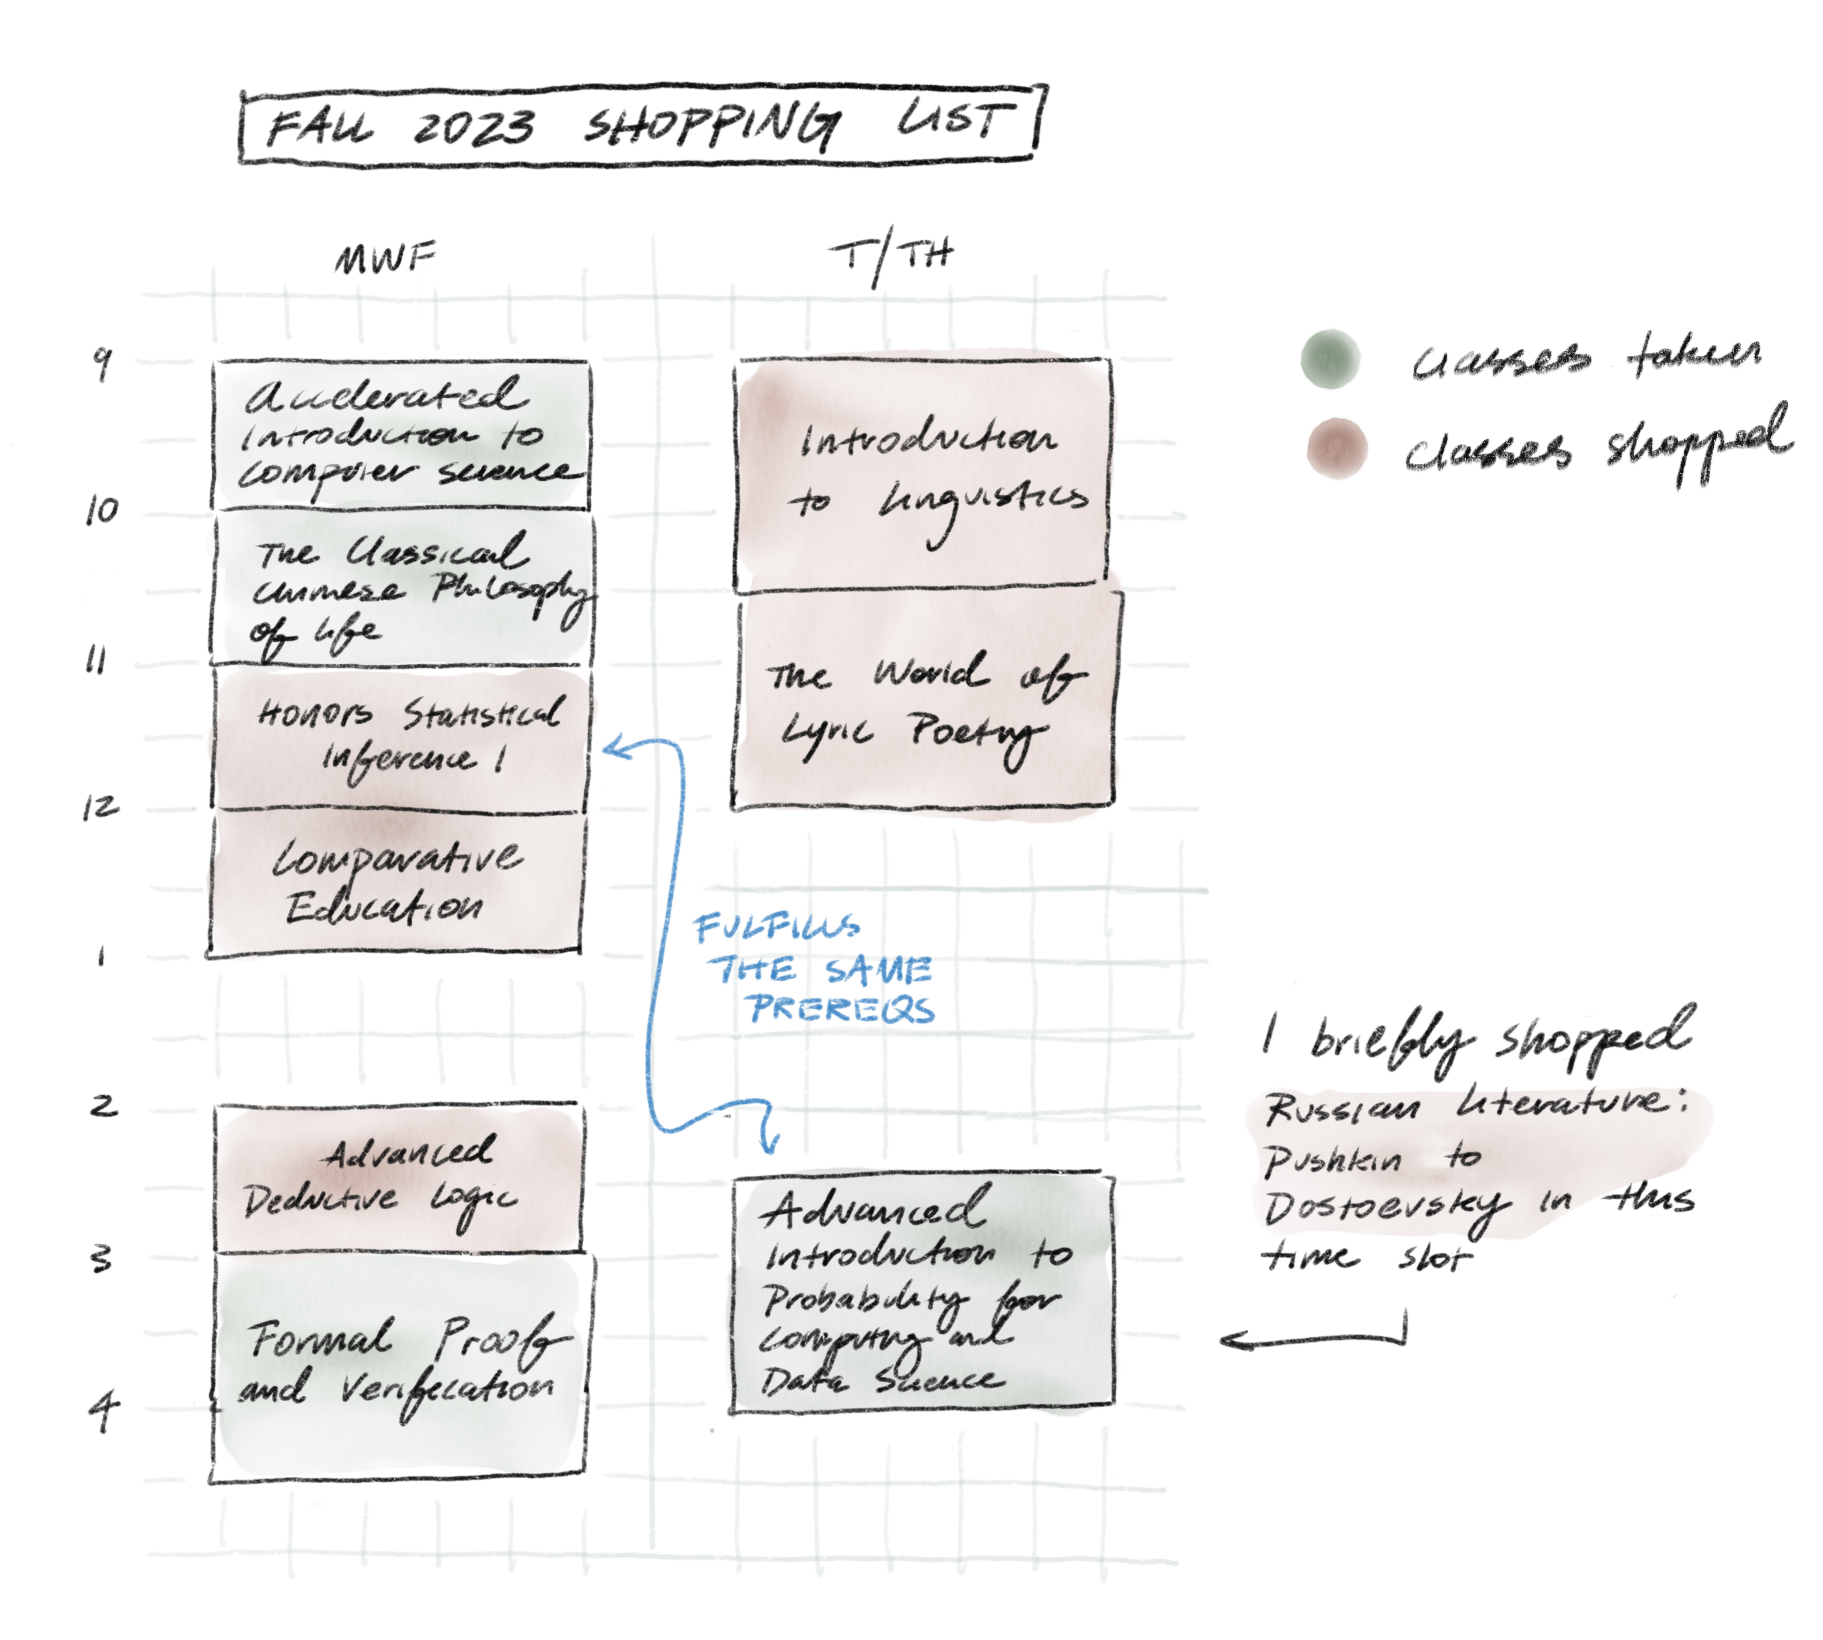 FALL 2023 SHOPPING LIST
MWF
T/TH
9
10
11
12
1
2
3
4
Accelerated
Introduction to
Computer Science
The Classical
Chinese Philosophy
of Life
Honors Statistical
Inference 1
Comparative
Education
Advanced
Deductive Logic
Formal Proof
and Verification
Introduction
to Linguistics
The World of
Lyric Poetry
FULFILLS
THE SAME
PREREQS
Advanced
Introduction to
Probability for
Computing and
Data Science
classes taken
classes shopped
I briefly shopped
Russian Literature:
Pushkin to
Dostoevsky in this
time slot